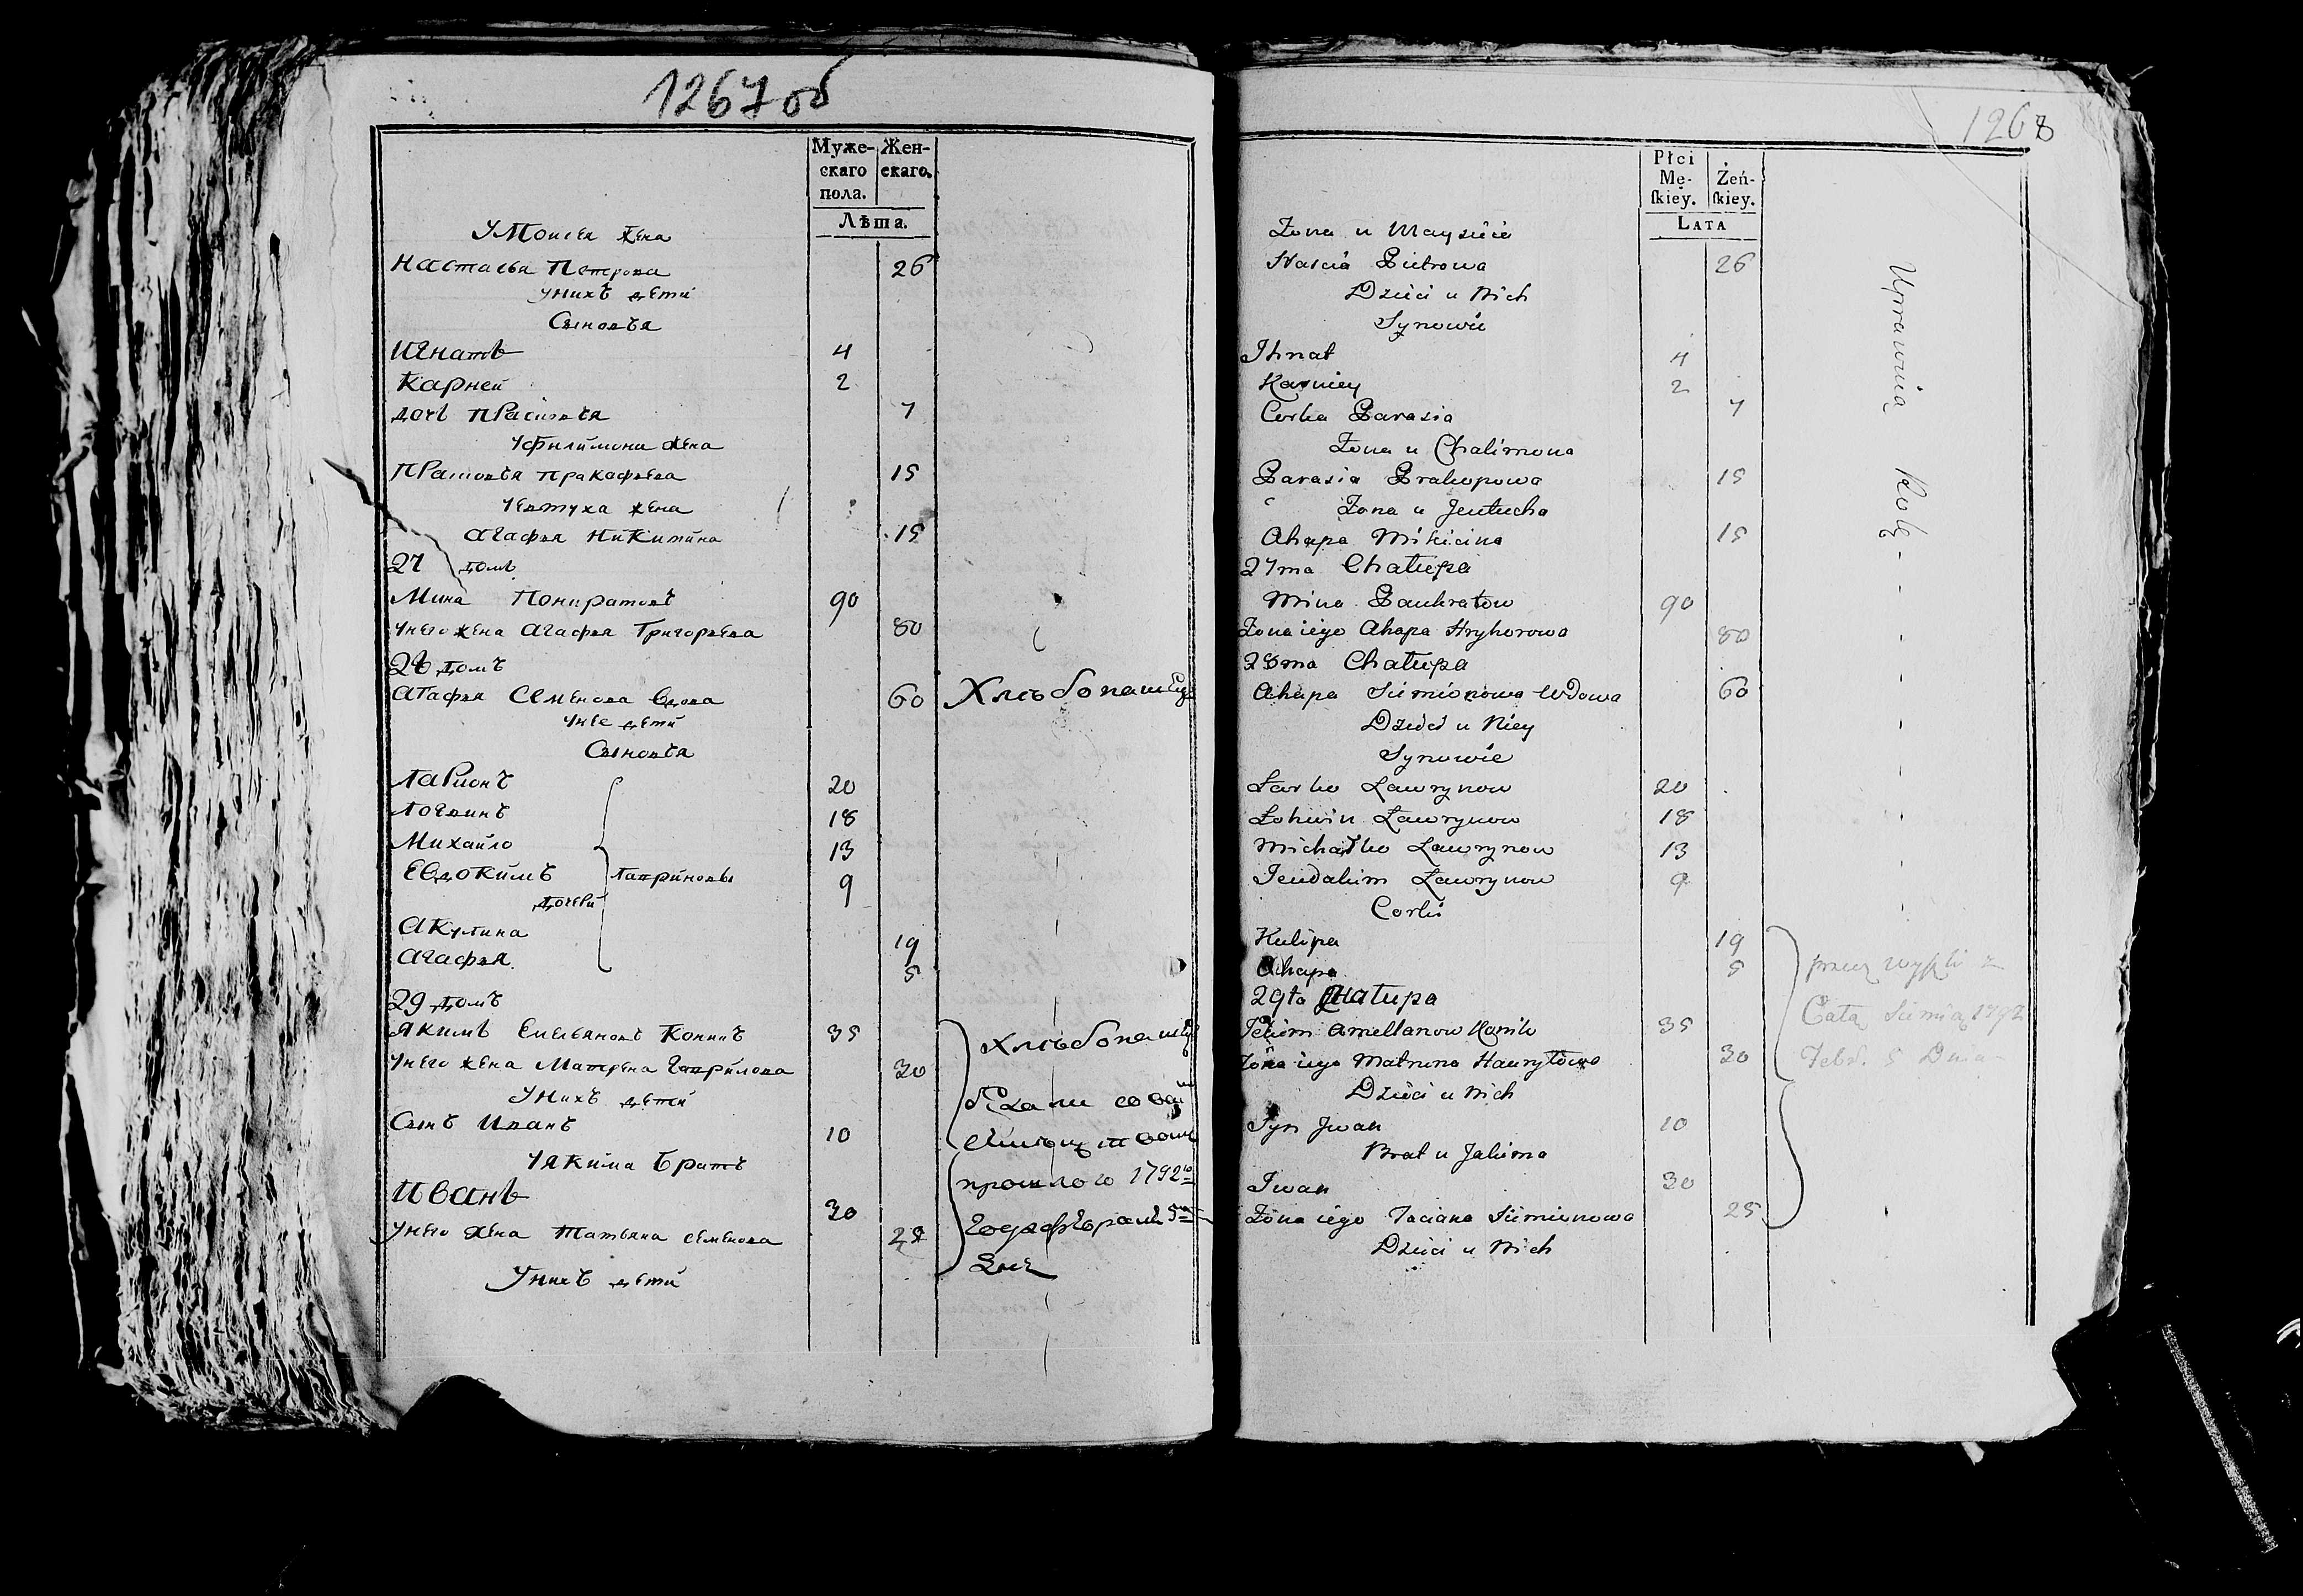 1267об
Муже-
скаго
пола.
Жен-
скаго.
Лѣта.
У Моисея жена
Настасья Петрова 26
У нихъ дети
Сыновья
Игнатъ 4
Карней 2
дочь Прасковья 7
У Филимона жена
Прасковья Пракафьева 15
У Евтуха жена
Агафья Никитина 15
27 домъ
Мина Понкратовъ 90
У него жена Агафья Григорьева 80
28 домъ
Агафья Семенова вдова 60 Хлѣбопашцы
У нее дети
Сыновья
Ларионъ 20
Логвинъ 18
Михайло 13
Евдокимъ Лавриновы 9
дочери
Акулина 19
Агафья 5
29 домъ
Якимъ Емельяновъ 35 Хлѣбопашцы
У него жена Матрена Гаврилова 30
У нихъ дети
Сынъ Иванъ 10
У Якима братъ прошлого 1792го
Иванъ 30
года февраля 5го
У него жена Татьяна Семенова
дня
У нихъ дети
1268
Płci
Mę-
skiey.
Żeń-
skiey.
LATA
Żona u Maysieia
Naścia Pietrowa 26
Dzieci u Nich
Synowie
Ihnat 4
Karniey 2
Corka Parasia 7
Żona u Chalimona
Parasia Prakopowa 15
Żona u Jeutucha
Ahapa Mikicina 15
27ma Chałupa
Mina Pankratow 90
Żona iego Ahapa Hryhorowa 80
28ma Chałupa
Ahapa Siemionowa Wdowa 60
Dzieci u Niey
Synowie
Łarko Ławrynow 20
Łohwin Ławrynow 18
Michałko Ławrynow 13
Jeudakim Ławrynow 9
Corki
Kulina 19
Ahapa 5
29ta Chałupa
Jakim Amellanow 35
Żona iego Matruna Hauryłowa 30
Dzieci u Nich
Syn Jwan 10
Brat u Jakima
Jwan 30
Żona iego Taciana Siemionowa 25
Dzieci u Nich
Uprawuią Rolę
Całą Siemią 1792
Febr. 5 Dnia